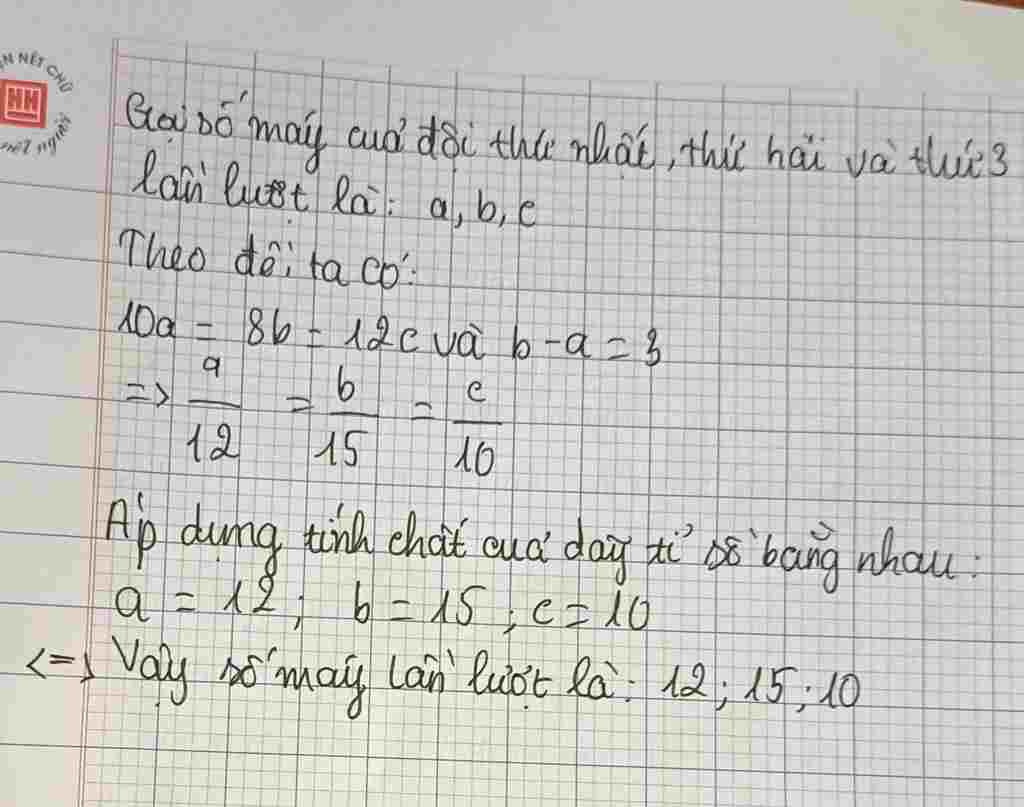 N NÉT CHỮ
HH
một người
Gọi số máy của đội thứ nhất, thứ hai và thứ 3
lần lượt là: a, b, c
Theo đề, ta có:
10a = 8b = 12c và b - a = 3
=> a/12 = b/15 = c/10
Áp dụng tính chất của dãy tỉ số bằng nhau:
a = 12; b = 15; c = 10
<=> Vậy số máy lần lượt là: 12; 15; 10